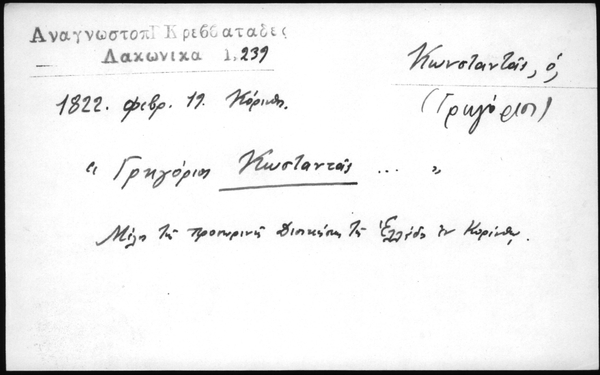 ΑναγνωστοπΓ Κρεββαταδες
Λακωνικα 1,239
Κωνσταντᾶς, ὁ,
(Γρηγόριος)
1822. φεβρ. 19. Κόρινθ.
"Γρηγόριος Κωσταντᾶς ... "
Μέλος τῆς προσωρινῆς Διοικήσεως τῆς Ἑλλάδος ἐν Κορίνθῳ.